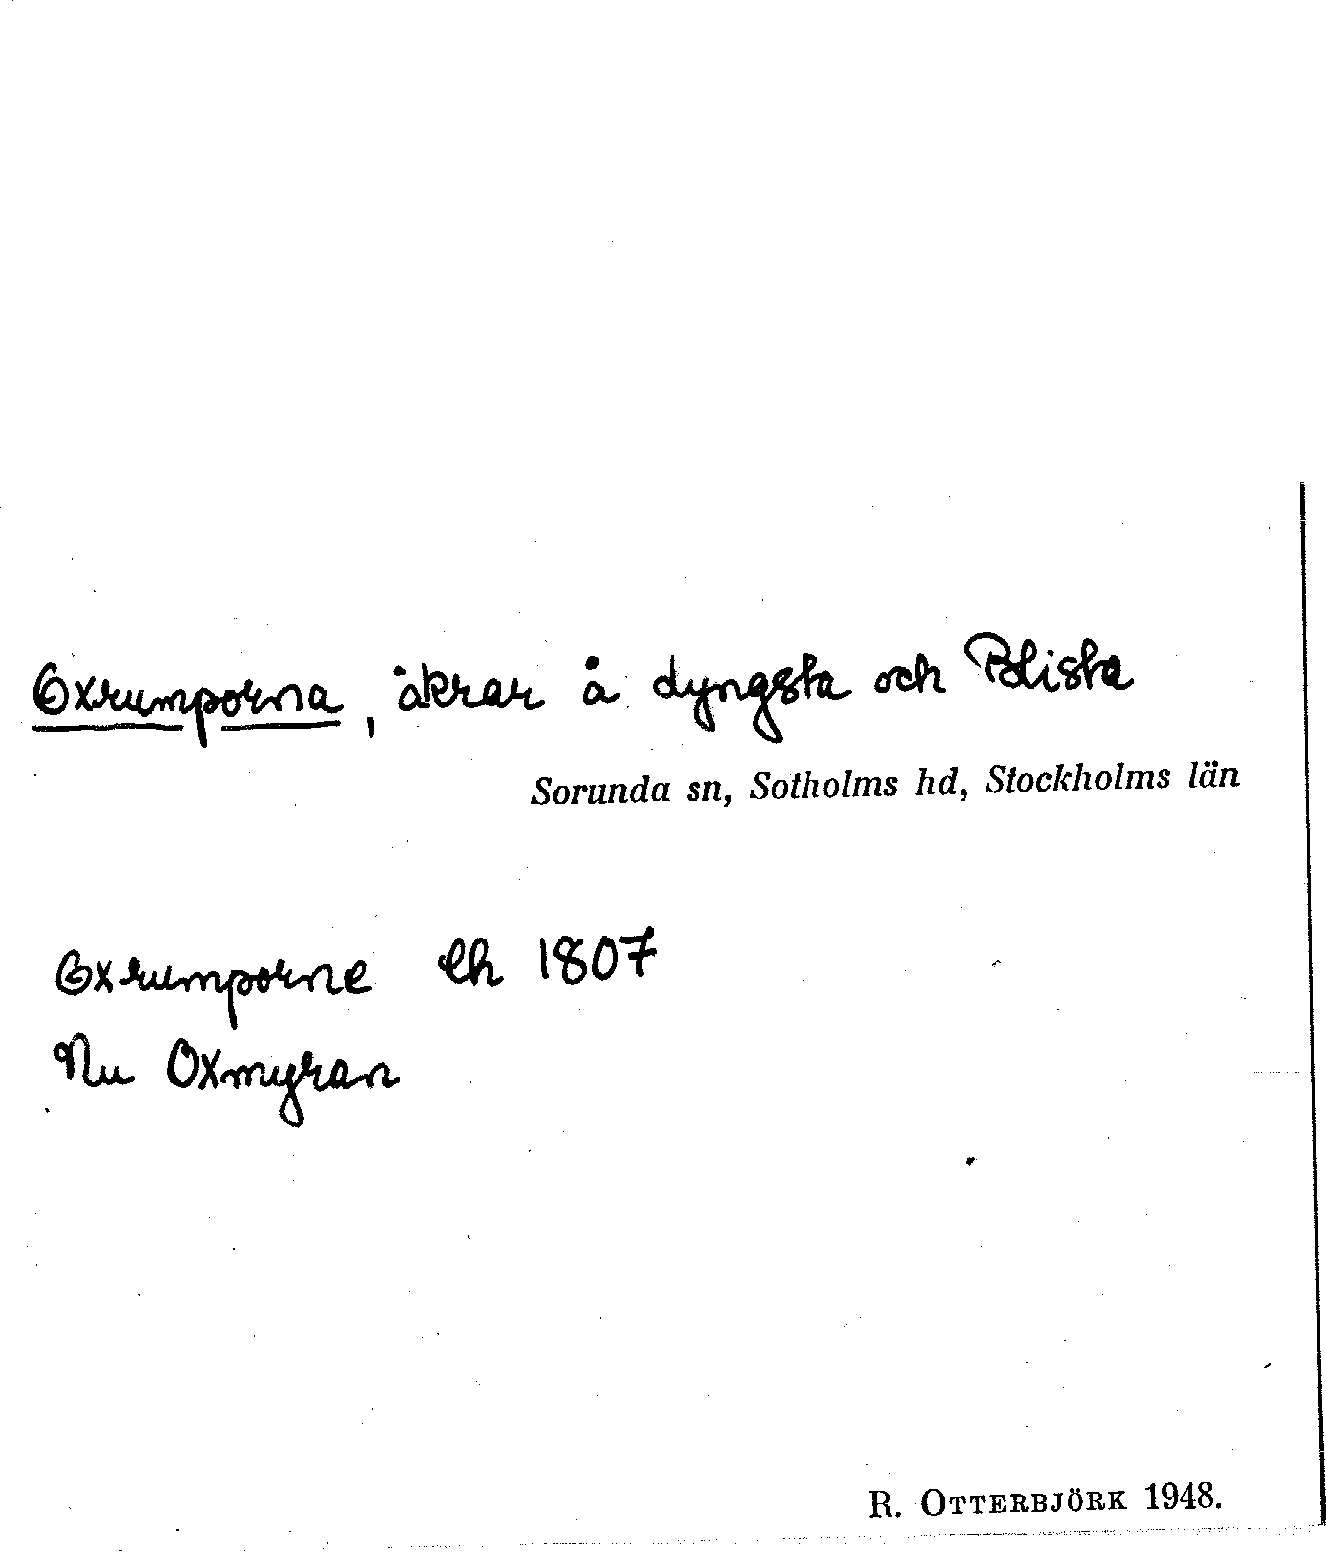 Oxrumporna, åkrar å dyngsta och Blista
Sorunda sn, Sotholms hd, Stockholms län
Oxrumporne lh 1807
Nu Oxmyran
R. OTTERBJÖRK 1948.